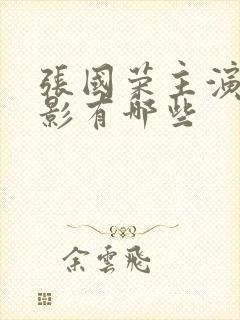 張國荣主演
影有哪些
余雲飛